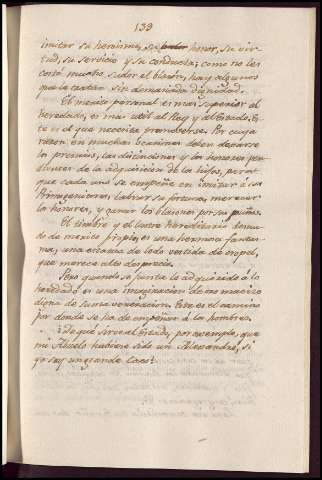 139
imitar su heroismo, su honor, su vir-
tud, su servicio y su conducta; como no les
costó mucho sudor el blasón, hay algunos
que le tratan sin demasiada dignidad.
El merito personal es mas superior al
heredado, es mas util al Rey y al Estado. Es-
te es el que necesita promoverse. Por cuya
razon, en muchas ocasiones deben dejarse
los premios, las distinciones y los honores pen-
dientes de la adquisicion de los hijos, para
que cada uno se empeñe en imitar á sus
Primogenitores, labrar su fortuna, merecer
los honores, y ganar los blasones por su puño.
El timbre y el lustre hereditario desnu-
do de merito propio, es una hermosa fantas-
ma, una estatua de lodo vestida de oropel,
que merece alto desprecio.
Pero quando se junta lo adquirido á lo
heredado es una imaginacion de oro macizo
digna de suma veneracion. Este es el camino
por donde se ha de empeñar á los hombres.
¿De qué sirve al Estado, por exemplo, que
mi Abuelo hubiese sido un Alexandro, si
yo soy un grande Caco?